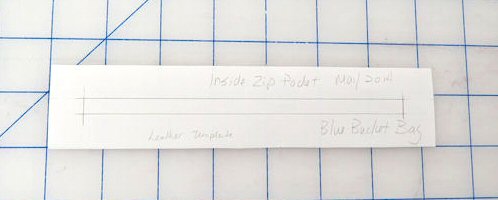 Inside Zip Pocket May 2014
Leather Template
Blue Bucket Bag